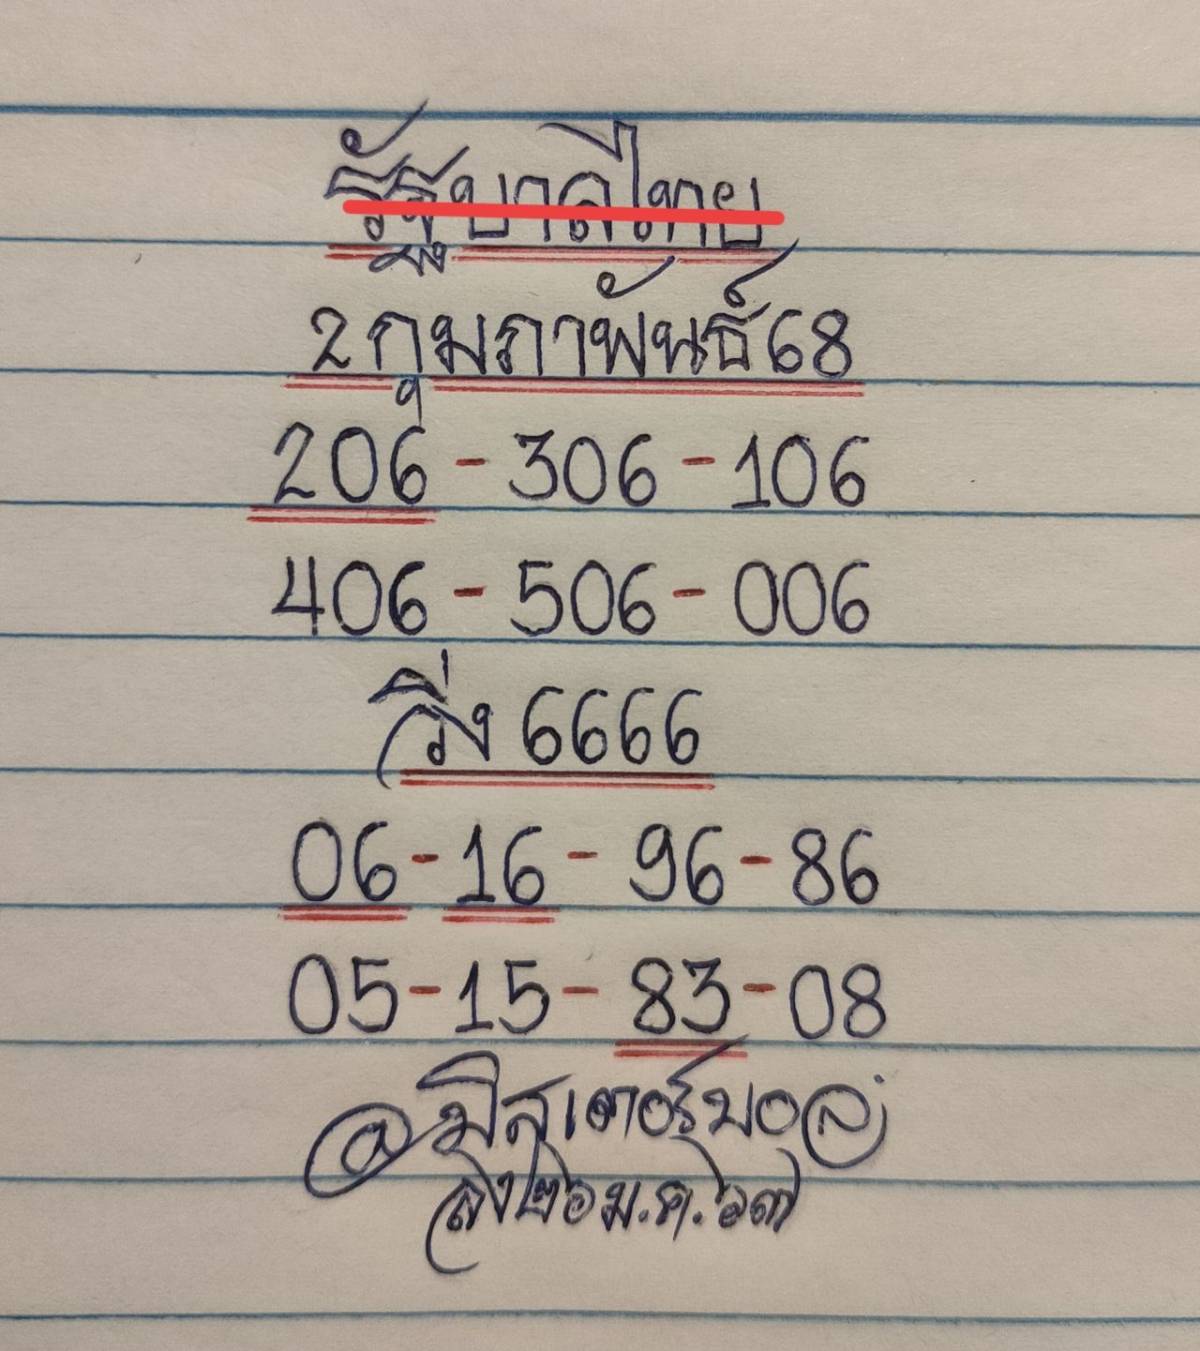 รัฐบาลไทย
2กุมภาพันธ์68
206-306-106
406-506-006
วิ่ง 6666
06-16-96-86
05-15-83-08
@มิสเตอร์บอล
ม.ค.